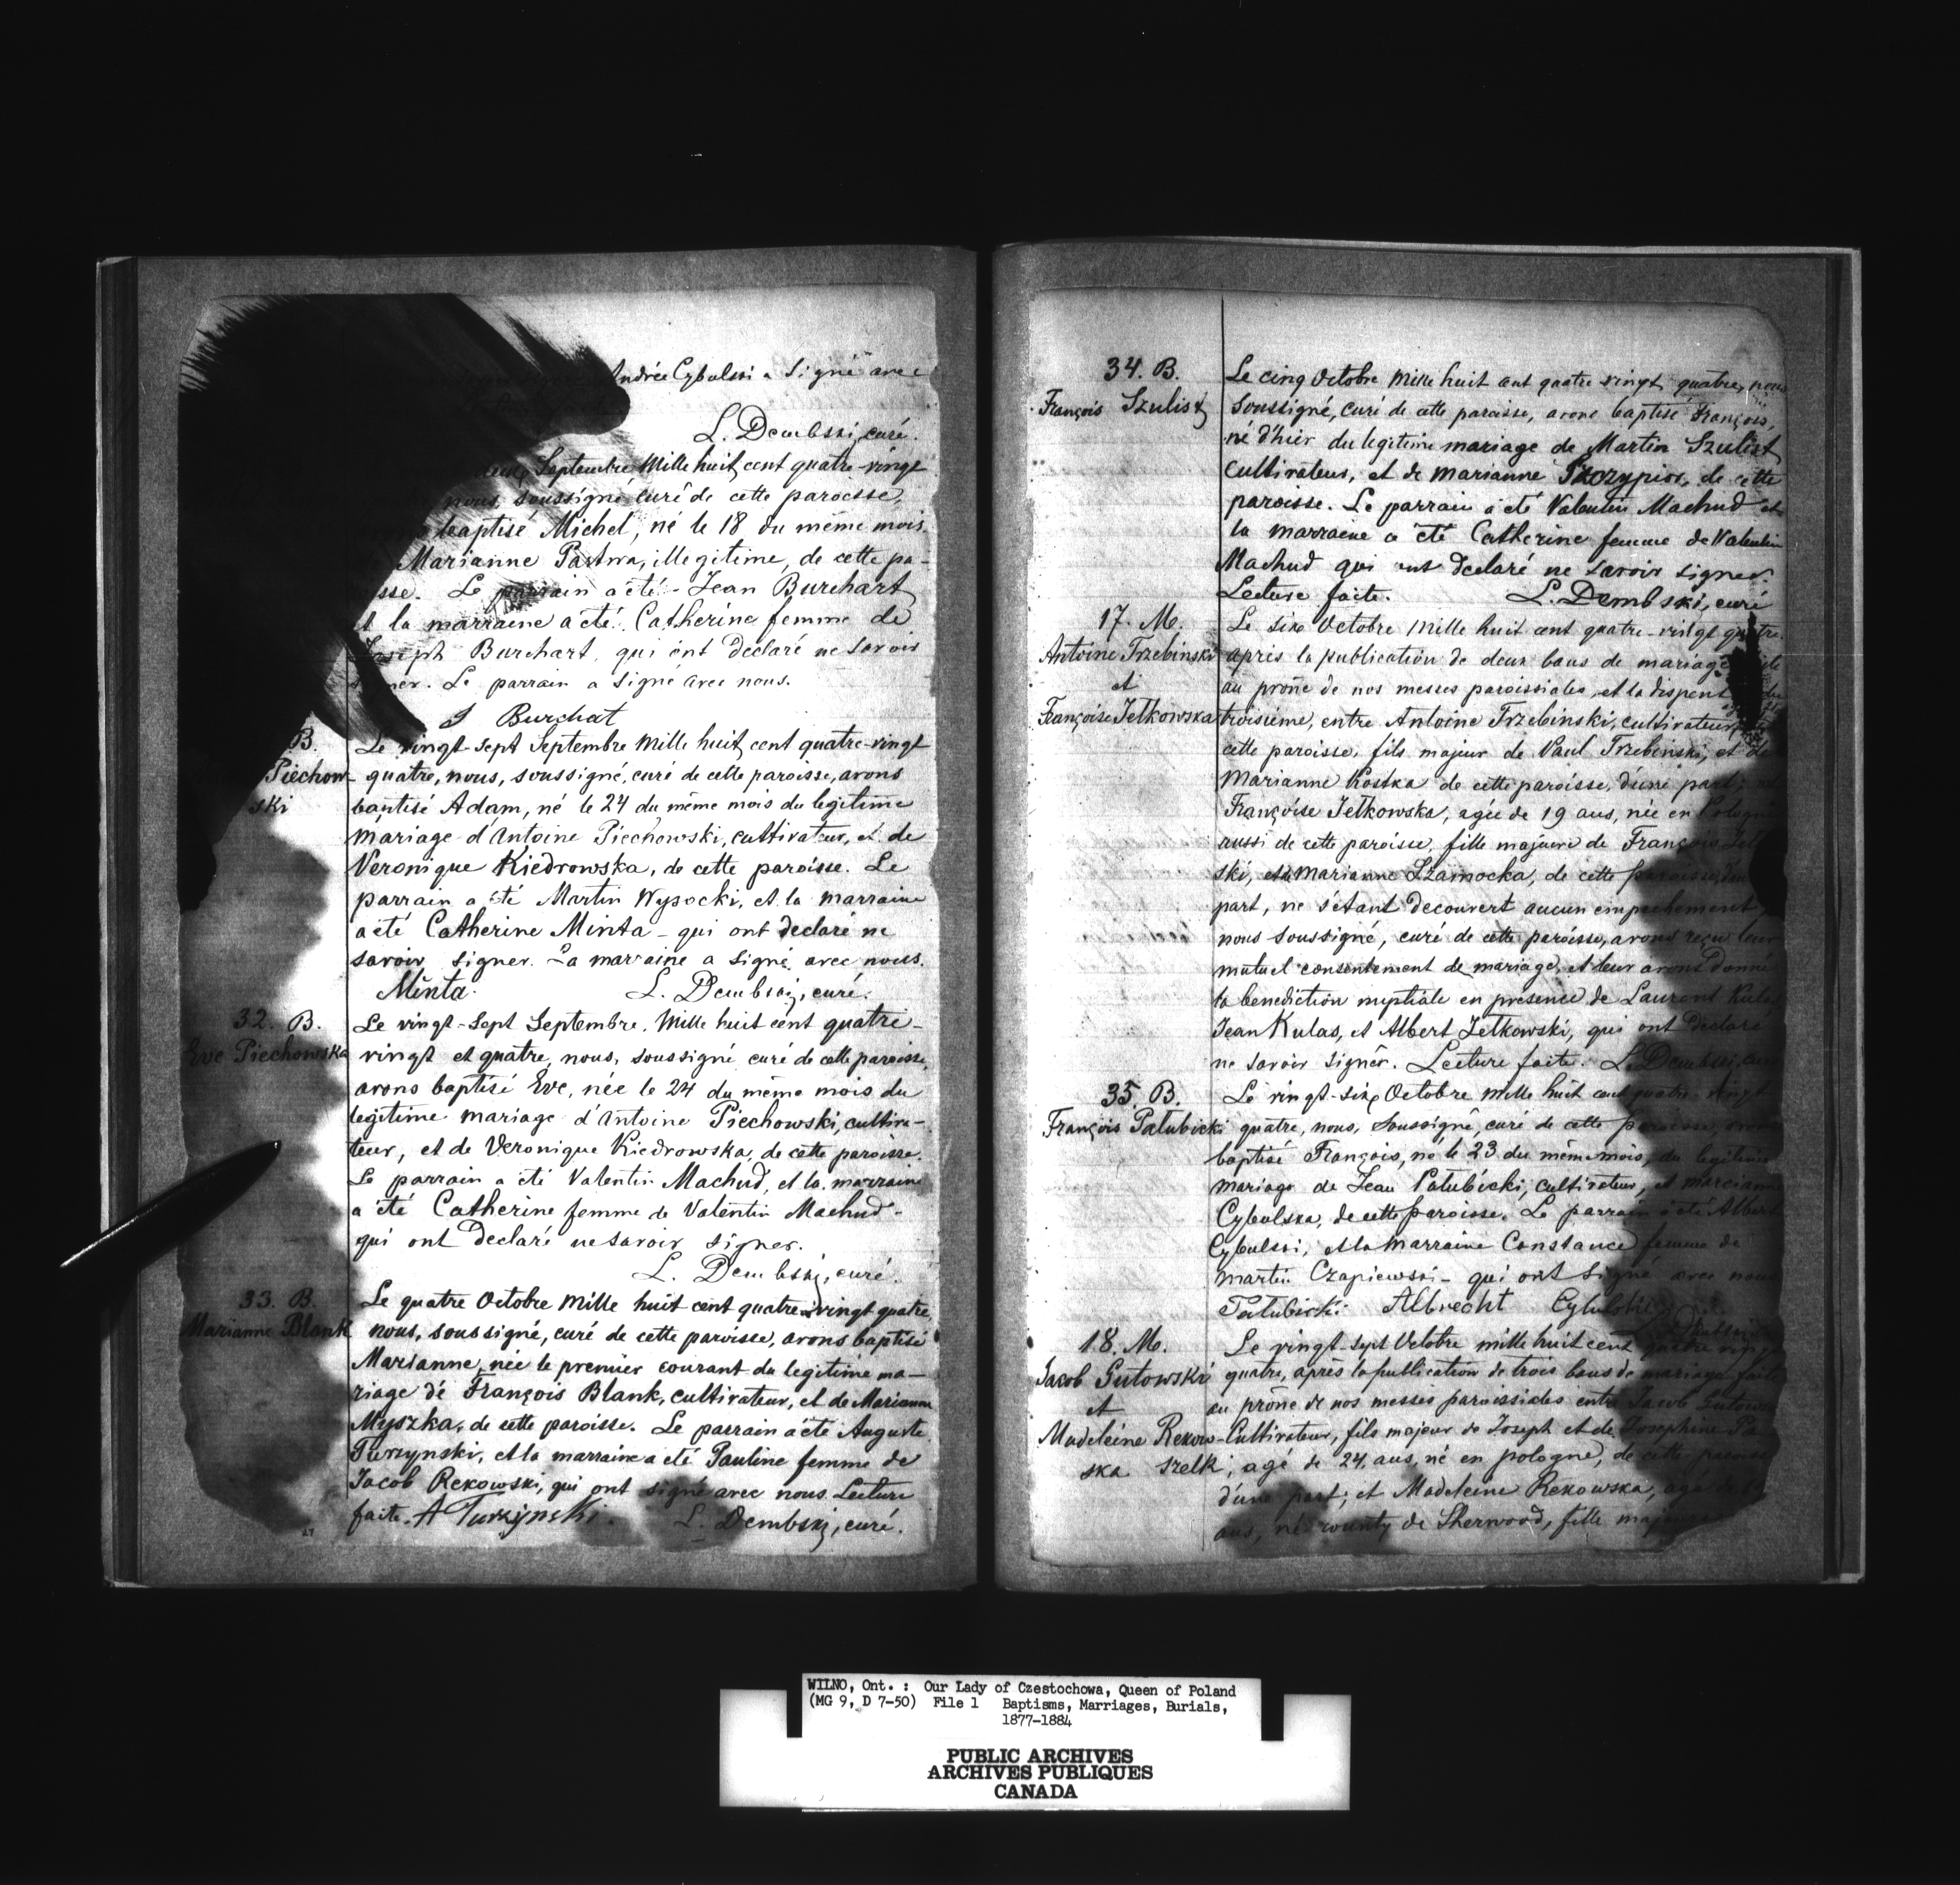 Andrée Cybulski a signé avec
L. Dembski, curé.
Septembre Mille huit cent quatre-vingt
nous, soussigné, curé de cette paroisse,
baptisé Michel, né le 18 du même mois,
Marianne Pastwa, illegitime, de cette pa-
sse. Le parrain a été - Jean Burchart
la marraine a été Catherine femme de
Joseph Burchart, qui ont declaré ne savoir
signer. Le parrain a signé avec nous.
J Burchat
B.
Piechow-
ski
Le vingt-sept Septembre Mille huit cent quatre-vingt
quatre, nous, soussigné, curé de cette paroisse, avons
baptisé Adam, né le 24 du même mois du legitime
mariage d'Antoine Piechowski, cultivateur, et de
Veronique Kiedrowska, de cette paroisse. Le
parrain a été Martin Wysocki, et la marraine
a été Catherine Minta - qui ont declaré ne
savoir signer. La marraine a signé avec nous.
Minta. L. Dembski, curé.
32. B.
Eve Piechowska
Le vingt-sept Septembre, Mille huit cent quatre-
vingt et quatre, nous, soussigné curé de cette paroisse,
avons baptisé Eve, née le 24 du même mois du
legitime mariage d'Antoine Piechowski, cultiva-
teur, et de Veronique Kiedrowska, de cette paroisse.
Le parrain a été Valentin Machud, et la marraine
a été Catherine femme de Valentin Machud -
qui ont declaré ne savoir signer.
L. Dembski, curé.
33. B.
Marianne Blank
Le quatre Octobre Mille huit cent quatre-vingt quatre,
nous, soussigné, curé de cette paroisse, avons baptisé
Marianne, née le premier courant du legitime ma-
riage de François Blank, cultivateur, et de Marianne
Myszka, de cette paroisse. Le parrain a été Auguste
Turzynski, et la marraine a été Pauline femme de
Jacob Rekowski, qui ont signé avec nous. Lecture
faite. A Turzynski. L. Dembski, curé.
34. B.
François Szulist
Le cinq Octobre Mille huit cent quatre vingt quatre, nous
soussigné, curé de cette paroisse, avons baptisé François,
né d'hier du legitime mariage de Martin Szulist
cultivateur, et de Marianne de cette
paroisse. Le parrain a été Valentin Machud et
la marraine a été Catherine femme de Valentin
Machud qui ont declaré ne savoir signer.
Lecture faite. L. Dembski, curé
17. M.
Antoine Trzebinski
et
Françoise Jetkowska
Le six Octobre Mille huit cent quatre-vingt quatre
après la publication de deux bans de mariage
au prône de nos messes paroissiales, et la dispense du
troisième, entre Antoine Trzebinski, cultivateur,
cette paroisse, fils majeur de Paul Trzebinski, et de
Marianne Kostka de cette paroisse, d'une part; et
Françoise Jetkowska, agée de 19 ans, née en Pologne
aussi de cette paroisse, fille majeure de François Jet
ski, et de Marianne Szarnocka, de cette paroisse, d'
part, ne s'étant decouvert aucun empechement
nous soussigné, curé de cette paroisse, avons reçu leur
mutuel consentement de mariage, et leur avons donné
la benediction nuptiale en présence de Laurent Kulas
Jean Kulas, et Albert Jetkowski, qui ont declaré
ne savoir signer. Lecture faite. L. Dembski, cu
35. B.
François Palubicki
Le vingt-six Octobre Mille huit cent quatre-vingt
quatre, nous, soussigné, curé de cette paroisse, avons
baptisé François, né le 23 du même mois, du legitime
mariage de Jean Palubicki, cultivateur, et Marianne
Cybulska, de cette paroisse. Le parrain a été Albert
Cybulski, et la marraine Constance femme de
Martin Czapiewski - qui ont signé avec nous
Palubicki Albrecht Cybulski
18. M.
Jacob Gutowski
et
Madeleine Rekow-
ska
Le vingt-sept Octobre mille huit cent quatre vingt
quatre, après la publication de trois bans de mariage faite
au prône de nos messes paroissiales entre Jacob Gutowski
Cultivateur, fils majeur de Joseph et de Josephine
szelk, agé de 24 ans, né en pologne, de cette paroisse
d'une part; et Madeleine Rekowska, agé de
ans, né county de Sherwood, fille majeure
WILNO, Ont. : Our Lady of Czestochowa, Queen of Poland
(MG 9, D 7-50) File 1 Baptisms, Marriages, Burials,
1877-1884
PUBLIC ARCHIVES
ARCHIVES PUBLIQUES
CANADA